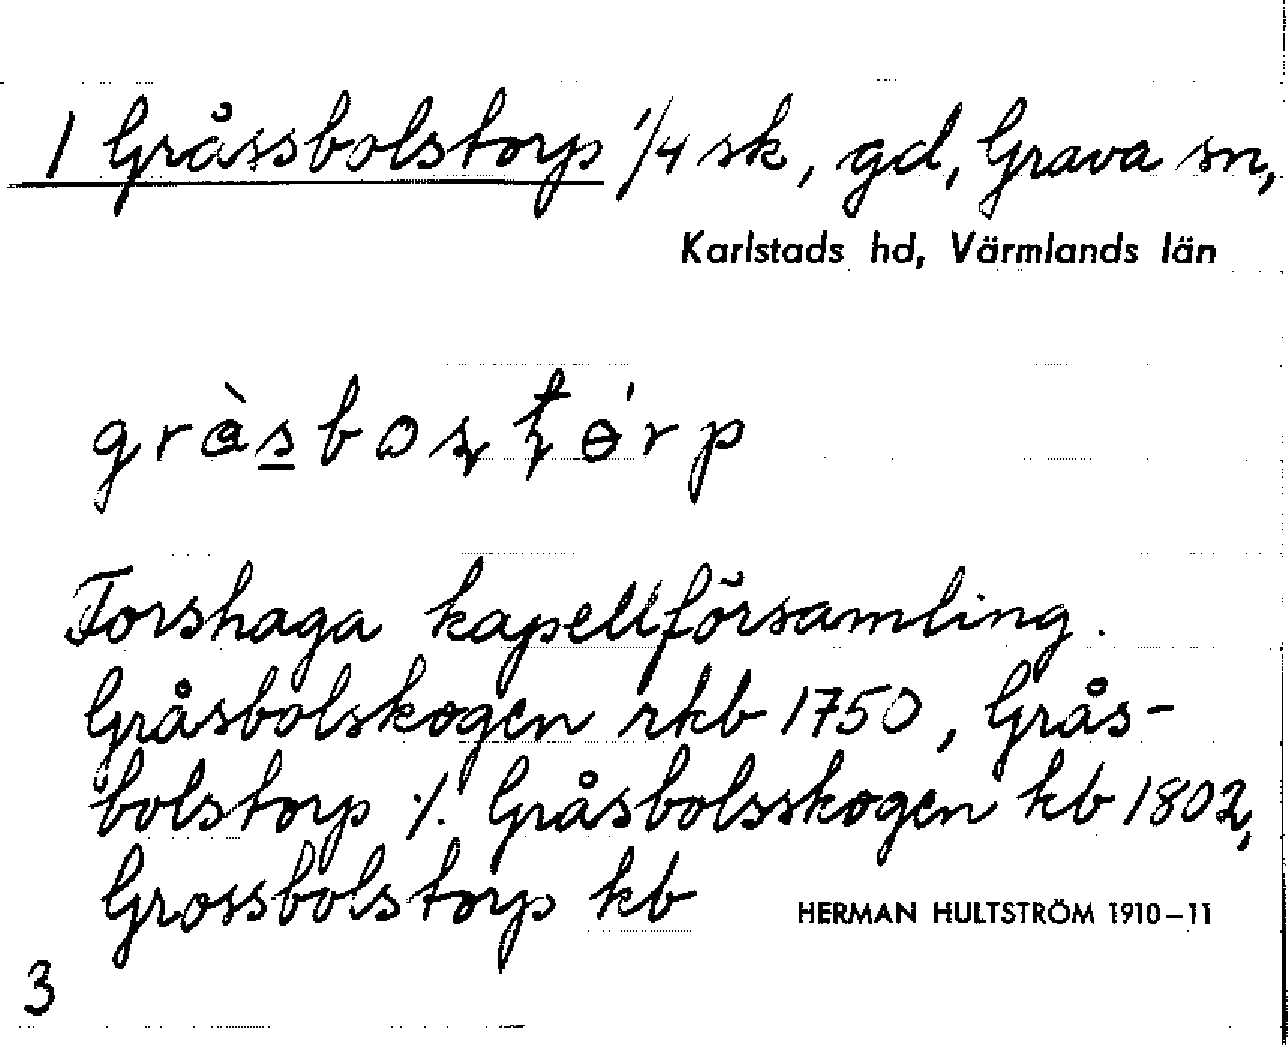 1 Gråssbolstorp 1/4 sk, gd, Grava sn,
Karlstads hd, Värmlands län
Forshaga kapellförsamling.
Gråsbolskogen rkb 1750, Grås-
bolstorp ·/. Gråsbolsskogen kb 1802,
Grossbolstorp kb
HERMAN HULTSTRÖM 1910–11
3